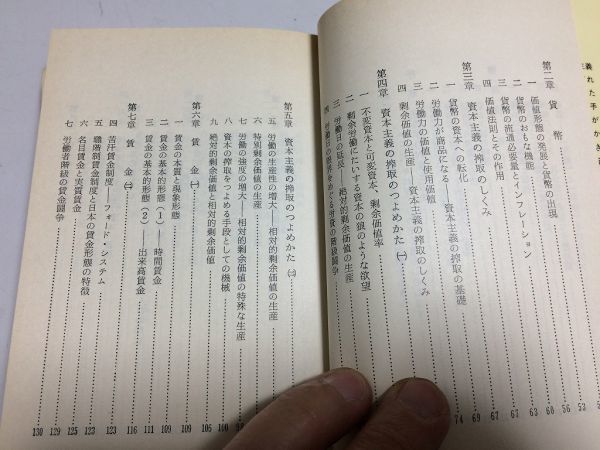 第二章 貨幣
一 価値形態の発展と貨幣の出現 52
二 貨幣のおもな機能 56
三 貨幣の流通必要量とインフレーション 60
四 価値法則とその作用 63
第三章 資本主義の搾取のしくみ
一 貨幣の資本への転化 67
二 労働力が商品になる——資本主義の搾取の基礎 67
三 労働力の価値と使用価値 69
四 剰余価値の生産——資本主義の搾取のしくみ 74
第四章 資本主義の搾取のつよめかた(一)
一 不変資本と可変資本、剰余価値率
二 剰余労働にたいする資本の狼のような欲望
三 労働日の延長——絶対的剰余価値の生産
四 労働日の限界をめぐる労資の階級闘争
第五章 資本主義の搾取のつよめかた(二)
五 労働の生産性の増大——相対的剰余価値の生産
六 特別剰余価値の生産
七 労働の強度の増大——相対的剰余価値の特殊な生産
八 資本の搾取をつよめる手段としての機械 100
九 絶対的剰余価値と相対的剰余価値 105
第六章 賃金(一)
一 賃金の本質と現象形態 109
二 賃金の基本的形態(1)——時間賃金 111
三 賃金の基本的形態(2)——出来高賃金 116
第七章 賃金(二)
四 苦汗賃金制度——フォード・システム 123
五 職階制賃金制度と日本の賃金形態の特徴 123
六 名目賃金と実質賃金 125
七 労働者階級の賃金闘争 129
130